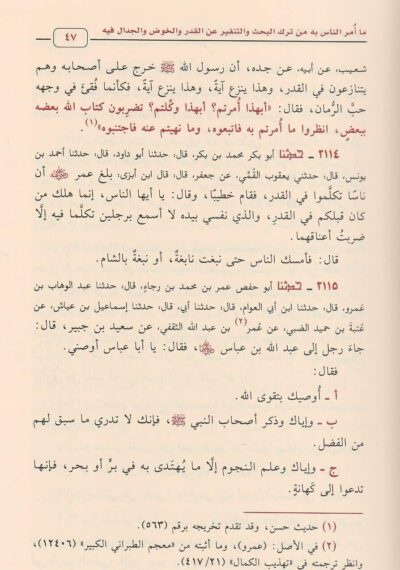 ما أُمر الناس به من ترك البحث والتنقير عن القدر والخوض والجدال فيه
٤٧
شعيب، عن أبيه، عن جده، أن رسول الله ﷺ خرج على أصحابه وهم
يتنازعون في القدر، وهذا ينزع آيةً، وهذا ينزع آيةً، فكأنما فُقئَ في وجهه
حبَّ الرُّمان، فقال: «أبهذا أُمرتم؟ أبهذا وكِّلتم؟ تضرِبون كتاب الله بعضه
ببعضٍ، انظروا ما أُمرتم به فاتبعوه، وما نهيتم عنه فاجتنبوه»(١).
٢١١٤ ـ حدثنا أبو بكر محمد بن بكر، قال: حدثنا أبو داود، قال: حدثنا أحمد بن
يونس، قال: حدثني يعقوب القُمِّي، عن جعفر، قال: قال ابن أبزى: بلغ عمر ﵁ أن
ناسًا تكلَّموا في القدر، فقام خطيبًا، وقال: يا أيها الناس، إنما هلك من
كان قبلكم في القدر، والذي نفسي بيده لا أسمع برجلين تكلَّما فيه إلَّا
ضربتُ أعناقهما.
قال: فأمسك الناس حتى نبغت نابغةٌ، أو نبغةٌ بالشام.
٢١١٥ ـ حدثنا أبو حفص عمر بن محمد بن رجاءٍ، قال: حدثنا عبد الوهاب بن
عَمرو، قال: حدثنا ابن أبي العوام، قال: حدثنا أبي، قال: حدثنا إسماعيل بن عياش، عن
عُتبةَ بن حميد الضبي، عن عُمر(٢) بن عبد الله الثقفي، عن سعيد بن جبير، قال:
جاءَ رجل إلى عبد الله بن عباس ﵄، فقال: يا أبا عباس أوصني.
فقال:
أ ـ أُوصيك بتقوى الله.
ب ـ وإياك وذكر أصحاب النبي ﷺ، فإنك لا تدري ما سبق لهم
من الفضل.
ج ـ وإياك وعلم النجوم إلَّا ما يُهتدَى به في برٍّ أو بحر، فإنها
تدعوا إلى كَهانةٍ.
(١) حديث حسن، وقد تقدم تخريجه برقم (٥٦٣).
(٢) في الأصل: (عمرو)، وما أثبته من «معجم الطبراني الكبير» (١٢٤٠٦)،
وانظر ترجمته في «تهذيب الكمال» (٤١٧/٢١).